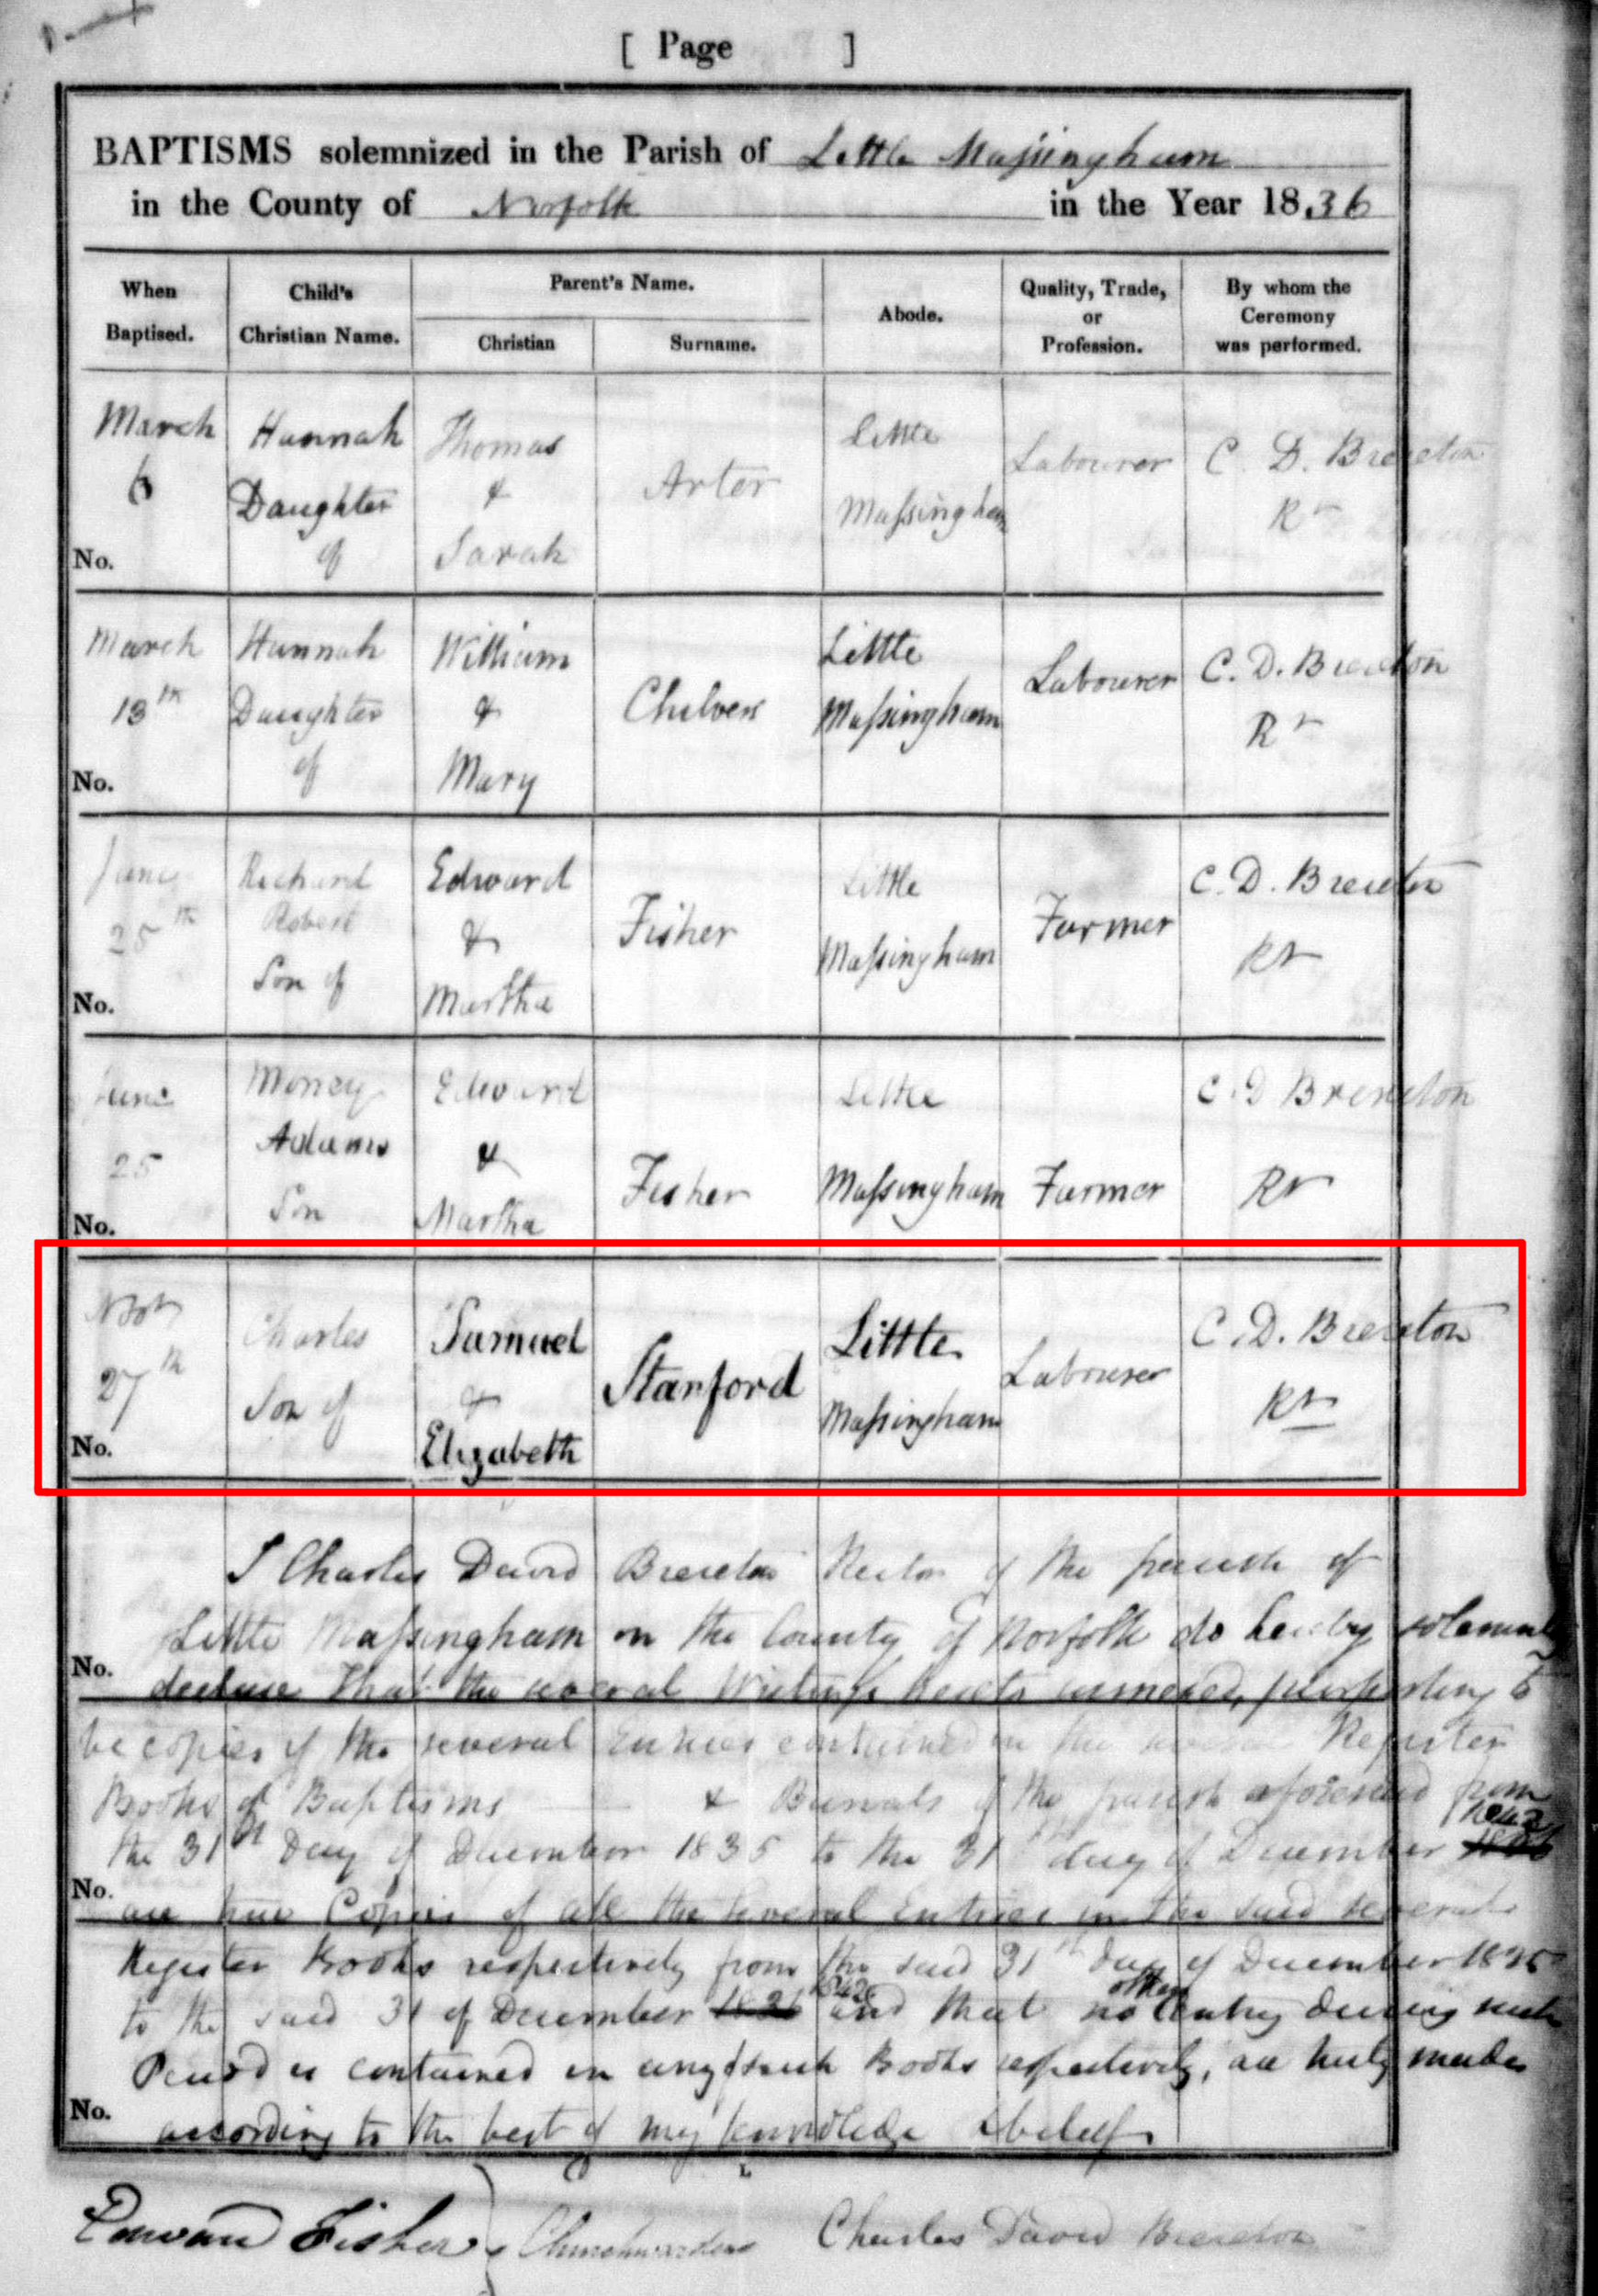 [ Page ]
BAPTISMS solemnized in the Parish of Little Maſsingham
in the County of Norfolk in the Year 1836
When Baptised.
Child's Christian Name.
Parent's Name.
Christian
Surname.
Abode.
Quality, Trade, or Profession.
By whom the Ceremony was performed.
March Hannah Thomas Little
6 Daughter & Arter Maſsingham Labourer C. D. Brereton
No. of Sarah Rr
March Hannah William Little
13th Daughter & Chilvers Maſsingham Labourer C. D. Brereton
No. of Mary Rr
June Richard Edward Little C. D. Brereton
25th Robert & Fisher Maſsingham Farmer Rr
No. Son of Martha
June Money Edward Little C. D Brereton
25 Adams & Fisher Maſsingham Farmer Rr
No. Son Martha
Charles Samuel Little C. D. Brereton
27th Son of & Stanford Maſsingham Labourer Rr
No. Elizabeth
I Charles David Brereton Rector of the parish of
Little Maſsingham in the County of Norfolk do hereby solemnly
No.
declare that the several Writings hereto annexed, purporting to
be copies of the several Entries contained in the several Register
Books of Baptisms & Burials of the parish aforesaid from
the 31st Day of December 1835 to the 31 day of December
No.
are true Copies of all the several Entries in the said several
Register Books respectively from the said 31st day of December 1835
to the said 31 of December 1836 and that no other Entry during such
Period is contained in any such Books respectively, are truly made
No.
according to the best of my knowledge & belief
Edward Fisher } Churchwarden Charles David Brereton